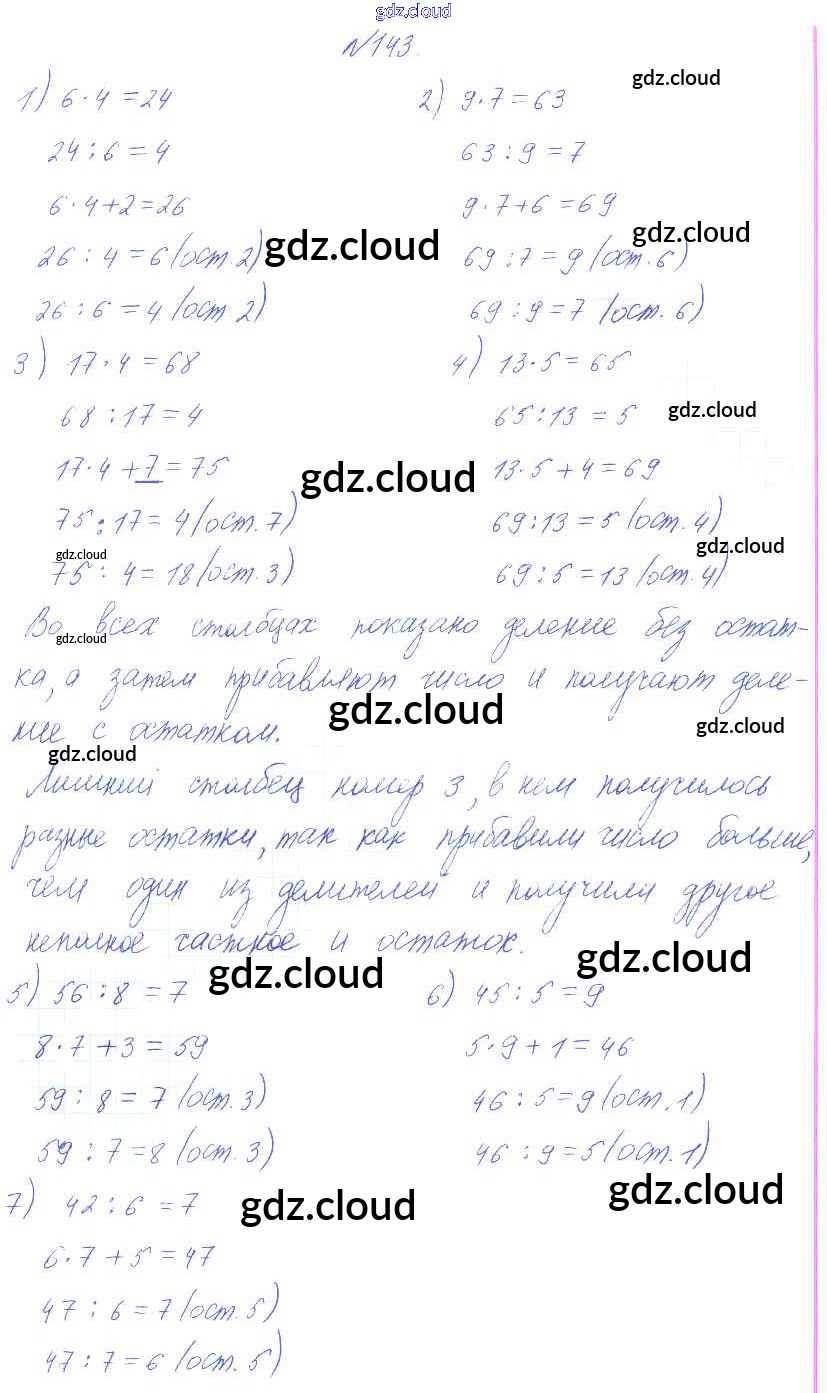 gdz.cloud
№143.
gdz.cloud
1) 6·4=24
24:6=4
6·4+2=26
26:4=6(ост.2)
gdz.cloud
26:6=4(ост.2)
2) 9·7=63
63:9=7
9·7+6=69
gdz.cloud
69:7=9(ост.6)
69:9=7(ост.6)
3) 17·4=68
68:17=4
17·4+7=75
gdz.cloud
75:17=4(ост.7)
gdz.cloud
75:4=18(ост.3)
4) 13·5=65
gdz.cloud
65:13=5
13·5+4=69
69:13=5(ост.4)
gdz.cloud
69:5=13(ост.4)
Во всех столбцах показано деление без остат-
gdz.cloud
ка, а затем прибавляют число и получают деле-
gdz.cloud
ние с остатком.
gdz.cloud
gdz.cloud
Лишний столбец номер 3, в нем получилось
разные остатки, так как прибавили число больше,
чем один из делителей и получили другое
неполное частное и остаток.
gdz.cloud
gdz.cloud
5) 56:8=7
8·7+3=59
59:8=7(ост.3)
59:7=8(ост.3)
6) 45:5=9
5·9+1=46
46:5=9(ост.1)
46:9=5(ост.1)
gdz.cloud
7) 42:6=7
gdz.cloud
6·7+5=47
47:6=7(ост.5)
47:7=6(ост.5)